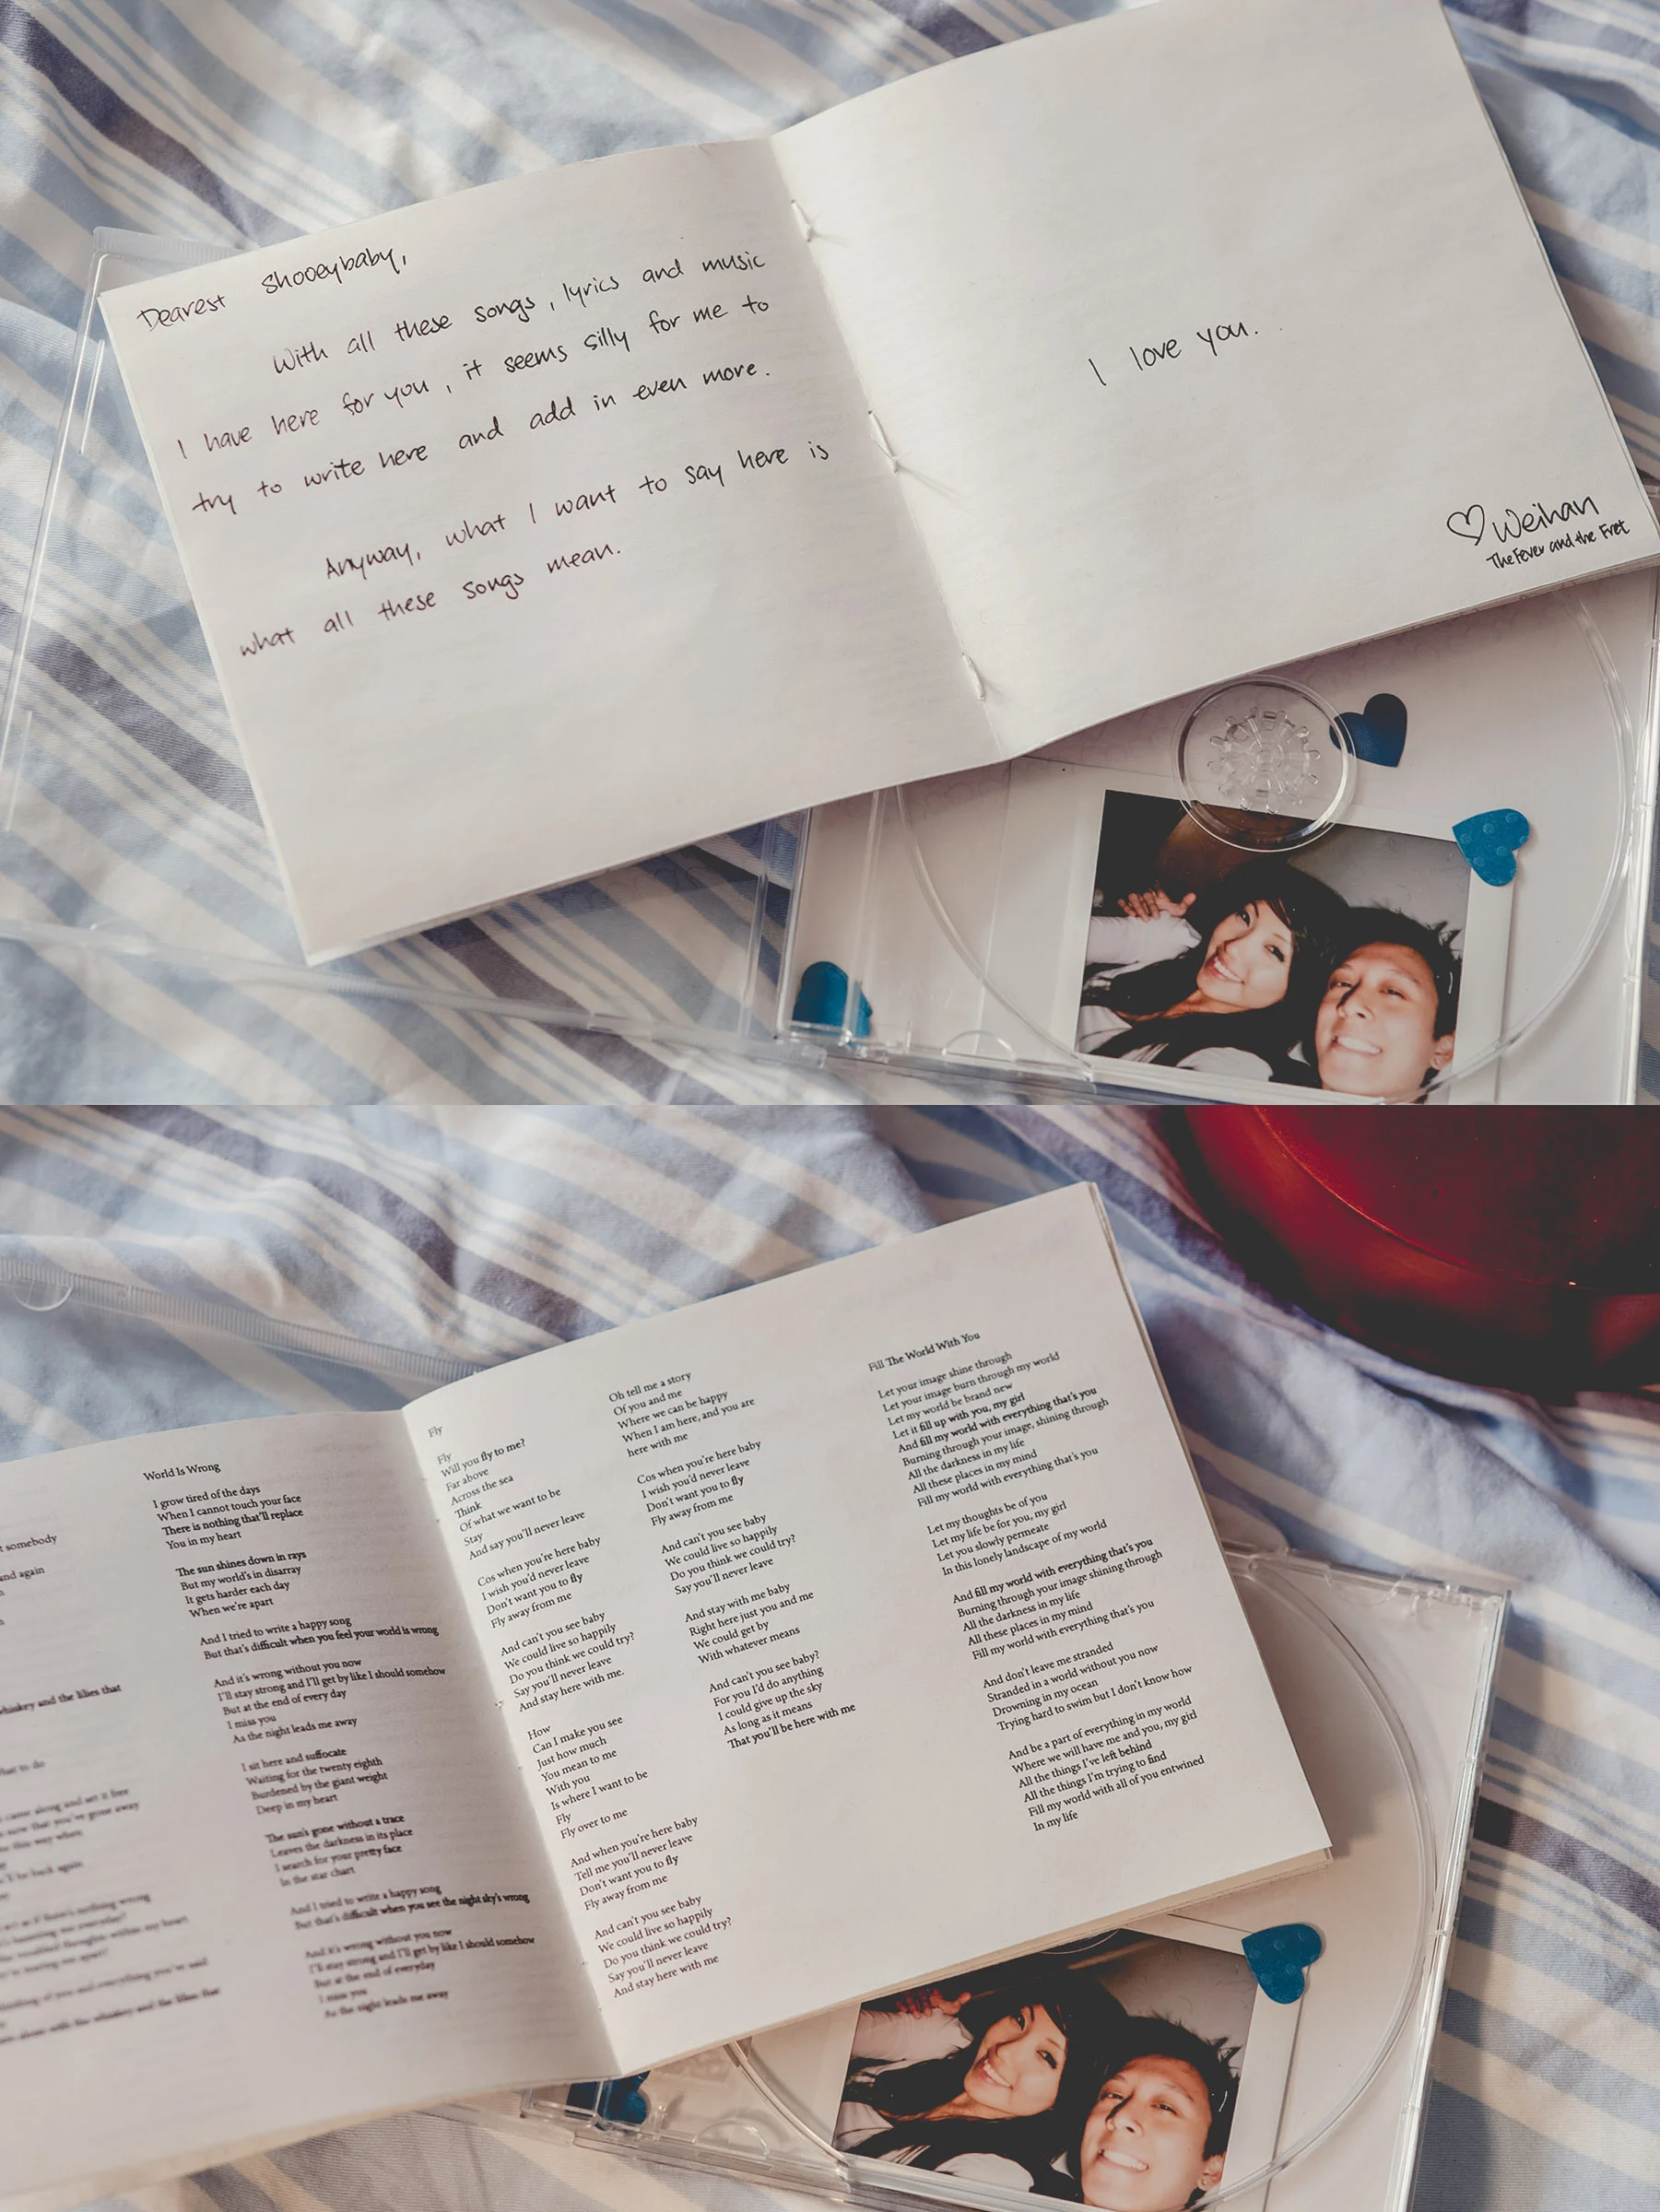 Dearest Shooeybaby,
With all these songs, lyrics and music
I have here for you, it seems silly for me to
try to write here and add in even more.
Anyway, what I want to say here is
what all these songs mean.
I love you.
♡ Weihan
The Fever and the Fret
somebody
and again
whiskey and the lilies that
that to do
came along and set it free
now that you've gone away
this way when
I'll be back again
nothing wrong
everyday?
thoughts within my heart
thinking of you and everything you've said
alone with the whiskey and the lilies that
World Is Wrong
I grow tired of the days
When I cannot touch your face
There is nothing that'll replace
You in my heart
The sun shines down in rays
But my world's in disarray
It gets harder each day
When we're apart
And I tried to write a happy song
But that's difficult when you feel your world is wrong
And it's wrong without you now
I'll stay strong and I'll get by like I should somehow
But at the end of every day
I miss you
As the night leads me away
I sit here and suffocate
Waiting for the twenty eighth
Burdened by the giant weight
Deep in my heart
The sun's gone without a trace
Leaves the darkness in its place
I search for your pretty face
In the star chart
And I tried to write a happy song
But that's difficult when you see the night sky's wrong
And it's wrong without you now
I'll stay strong and I'll get by like I should somehow
But at the end of everyday
I miss you
As the night leads me away
Fly
Fly
Will you fly to me?
Far above
Across the sea
Think
Of what we want to be
Stay
And say you'll never leave
Cos when you're here baby
I wish you'd never leave
Don't want you to fly
Fly away from me
And can't you see baby
We could live so happily
Do you think we could try?
Say you'll never leave
And stay here with me.
How
Can I make you see
Just how much
You mean to me
With you
Is where I want to be
Fly
Fly over to me
And when you're here baby
Tell me you'll never leave
Don't want you to fly
Fly away from me
And can't you see baby
We could live so happily
Do you think we could try?
Say you'll never leave
And stay here with me
Oh tell me a story
Of you and me
Where we can be happy
When I am here, and you are
here with me
Cos when you're here baby
I wish you'd never leave
Don't want you to fly
Fly away from me
And can't you see baby
We could live so happily
Do you think we could try?
Say you'll never leave
And stay with me baby
Right here just you and me
We could get by
With whatever means
And can't you see baby?
For you I'd do anything
I could give up the sky
As long as it means
That you'll be here with me
Fill The World With You
Let your image shine through
Let your image burn through my world
Let my world be brand new
Let it fill up with you, my girl
And fill my world with everything that's you
Burning through your image, shining through
All the darkness in my life
All these places in my mind
Fill my world with everything that's you
Let my thoughts be of you
Let my life be for you, my girl
Let you slowly permeate
In this lonely landscape of my world
And fill my world with everything that's you
Burning through your image shining through
All the darkness in my life
All these places in my mind
Fill my world with everything that's you
And don't leave me stranded
Stranded in a world without you now
Drowning in my ocean
Trying hard to swim but I don't know how
And be a part of everything in my world
Where we will have me and you, my girl
All the things I've left behind
All the things I'm trying to find
Fill my world with all of you entwined
In my life